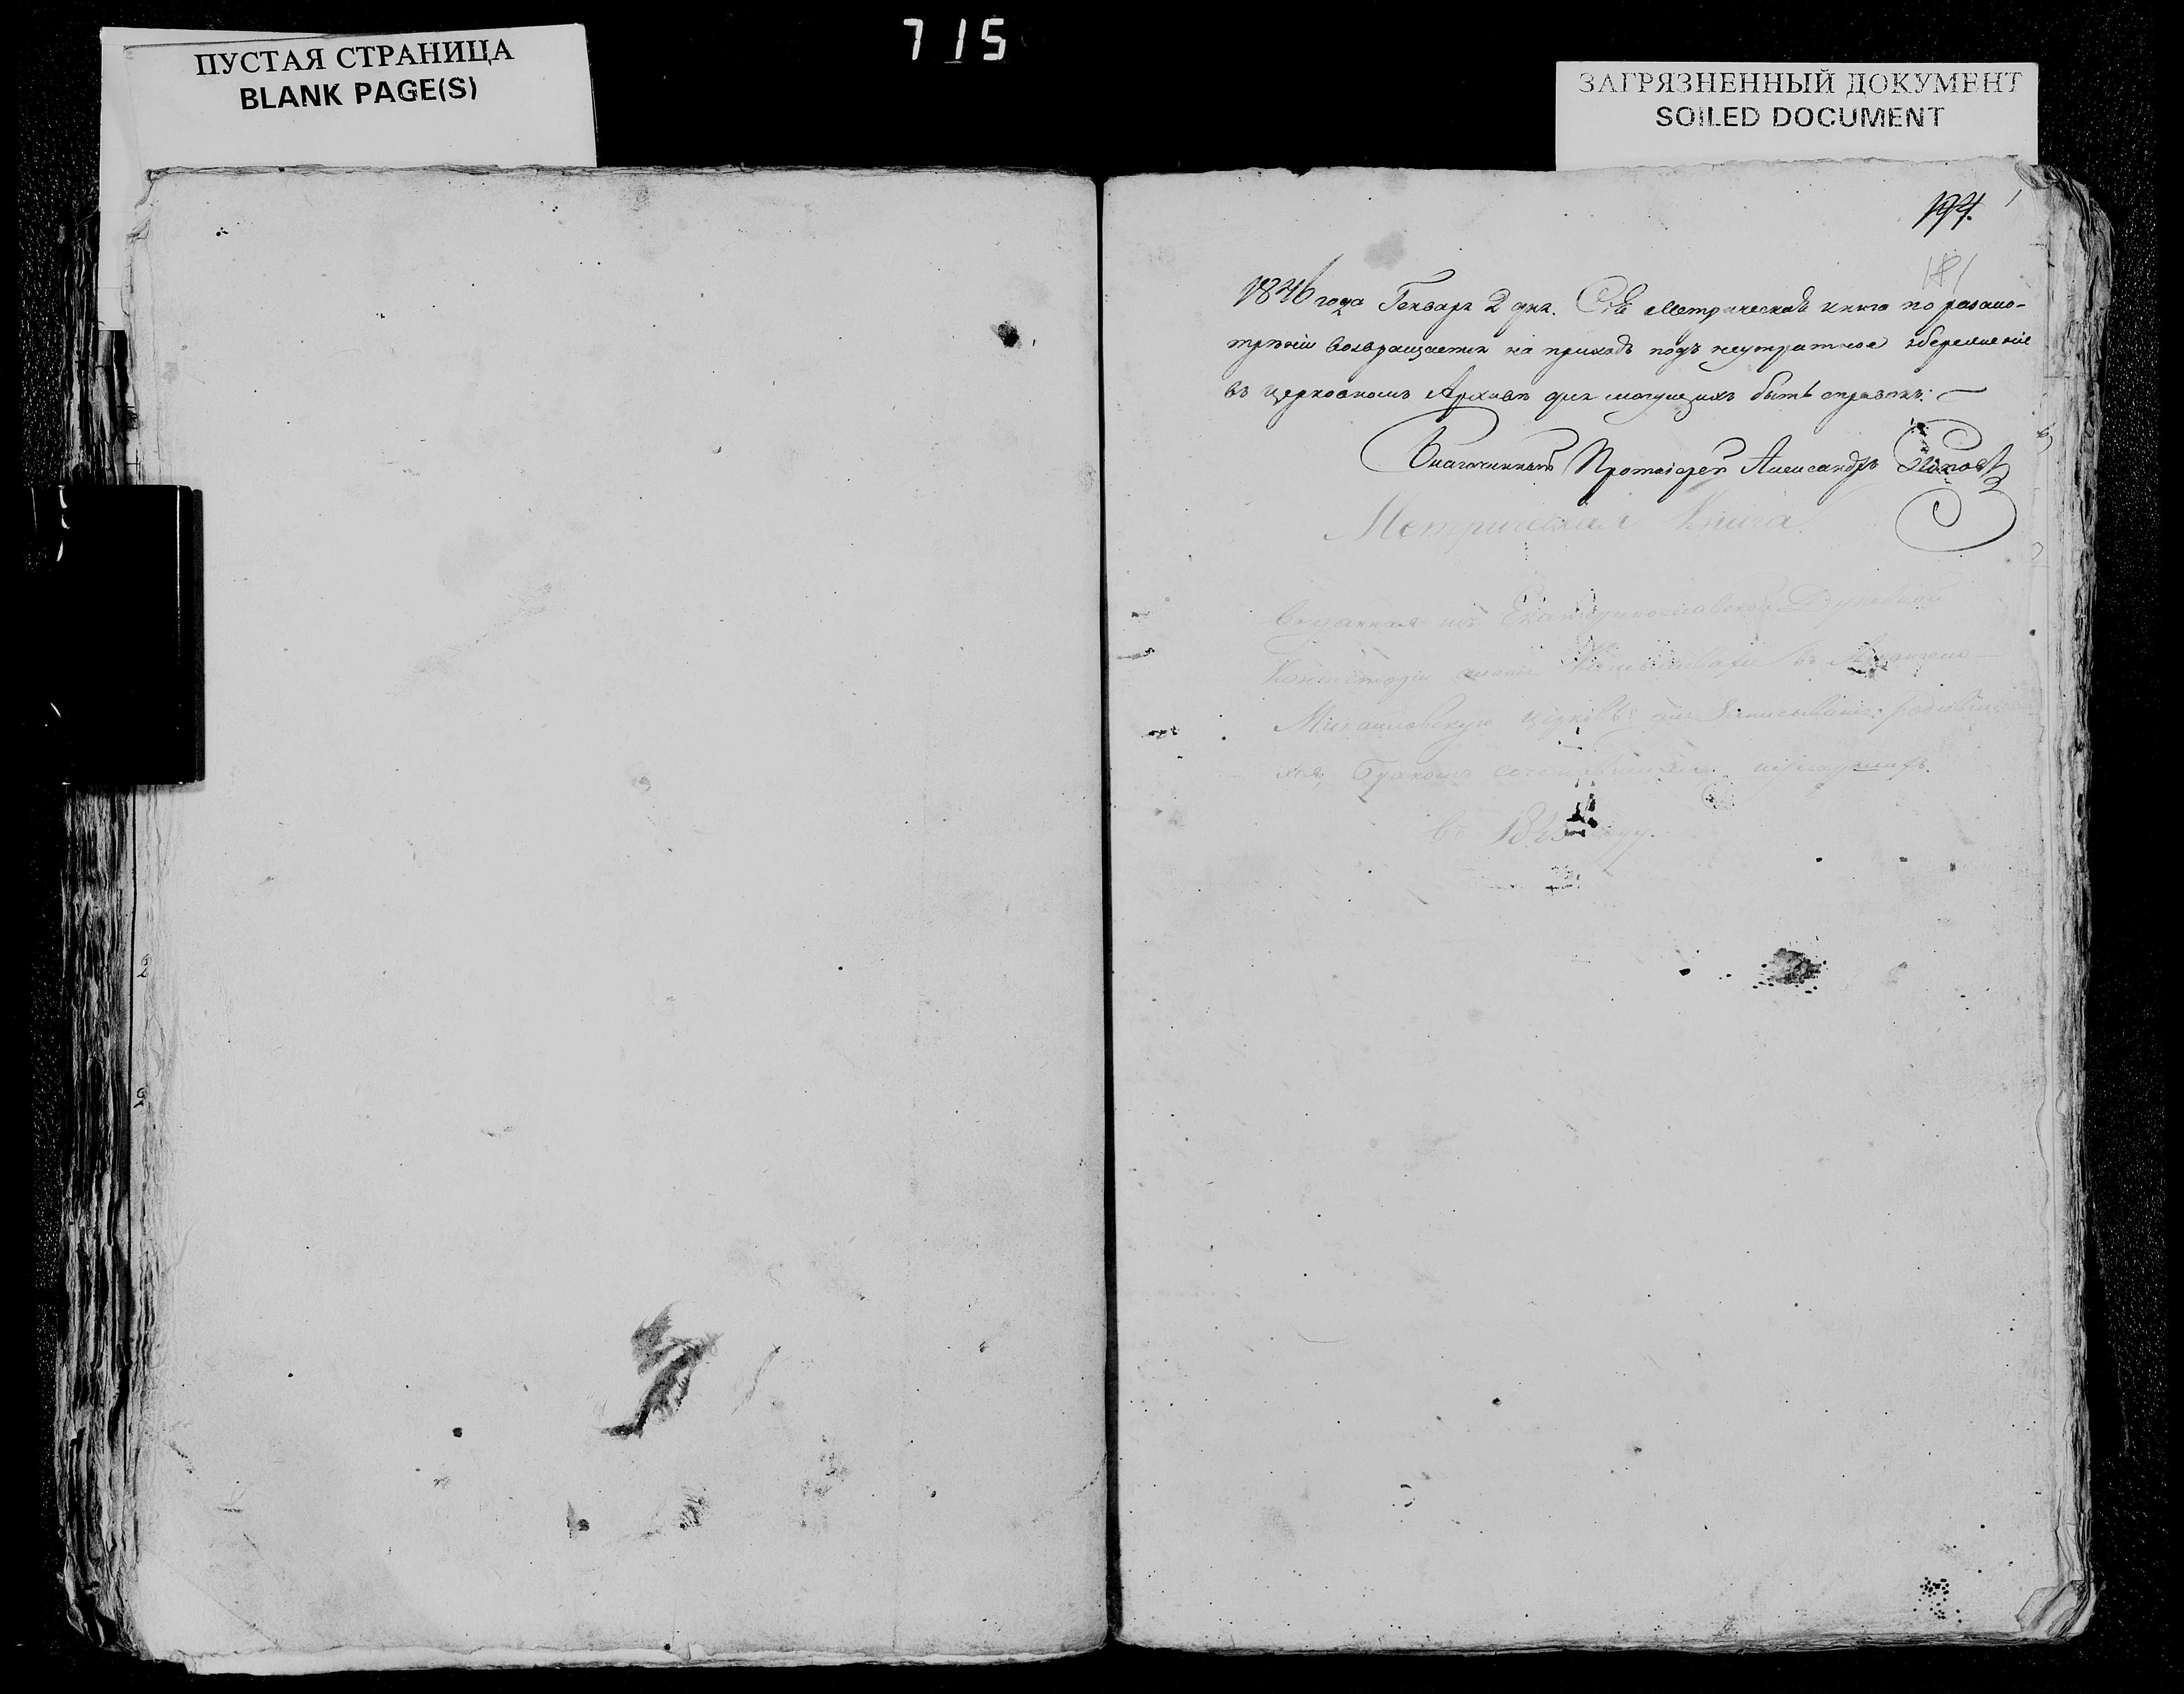 715
ПУСТАЯ СТРАНИЦА
BLANK PAGE(S)
ЗАГРЯЗНЕННЫЙ ДОКУМЕНТ
SOILED DOCUMENT
1846 года Генваря 2 дня. Сія Метрическая книга по разсмо-
трѣніи возвращается на приходъ подъ неутратное збереженіе
въ церковномъ Архивѣ для могущихъ быть справокъ. —
Благочинный Протоіерей Александръ
Метрическая Книга
Данная изъ Екатеринославской Духовной
Консисторіи въ Архангело-
Михайловскую церковь для записыванія родивших-
ся, бракомъ сочетавшихся и умершихъ.
въ 1845 году.